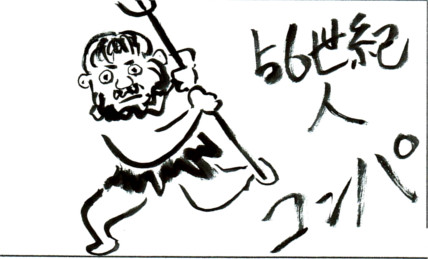 56世紀
人
コンパ